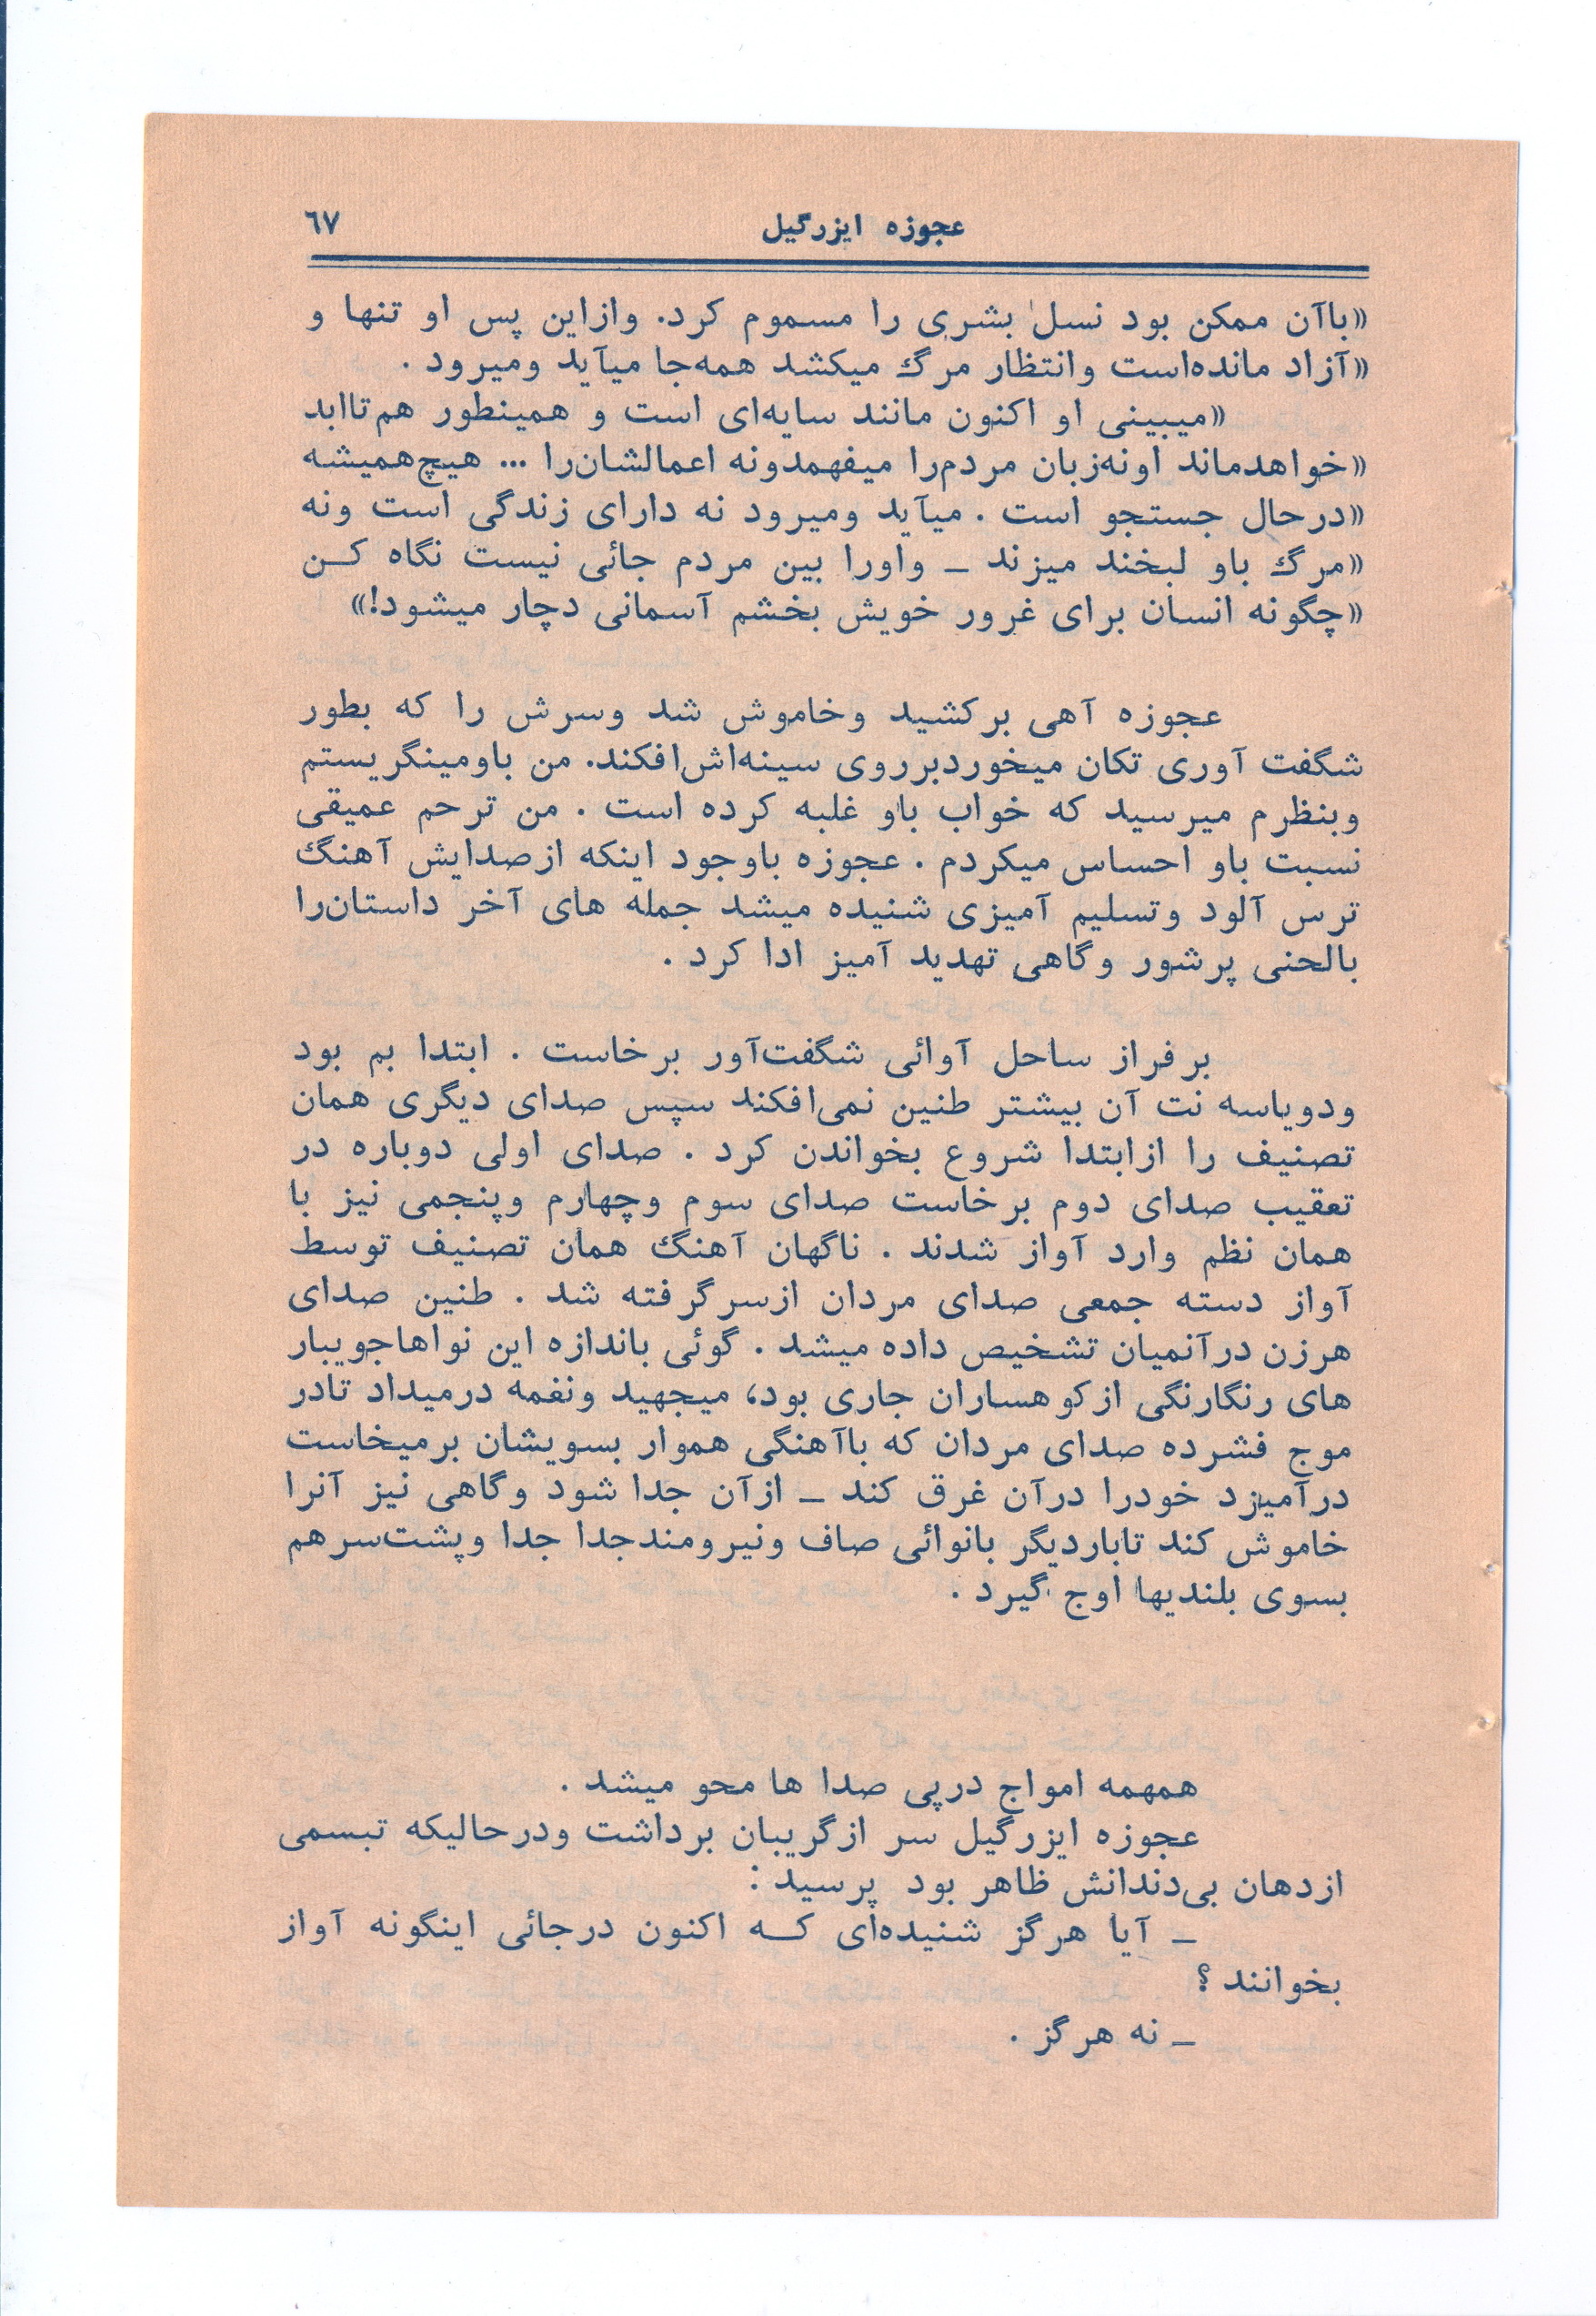 عجوزه ایزرگیل
٦٧
«باآن ممکن بود نسل بشری را مسموم کرد. وازاین پس او تنها و
«آزاد مانده‌است وانتظار مرگ میکشد همه‌جا میآید ومیرود .
«میبینی او اکنون مانند سایه‌ای است و همینطور هم‌تاابد
«خواهدماند اونه‌زبان مردم‌را میفهمدونه اعمالشان‌را ... هیچ‌همیشه
«درحال جستجو است . میآید ومیرود نه دارای زندگی است ونه
«مرگ باو لبخند میزند ــ واورا بین مردم جائی نیست نگاه کـن
«چگونه انسان برای غرور خویش بخشم آسمانی دچار میشود!»
عجوزه آهی برکشید وخاموش شد وسرش را که بطور
شگفت آوری تکان میخوردبرروی سینه‌اش‌افکند. من باومینگریستم
وبنظرم میرسید که خواب باو غلبه کرده است . من ترحم عمیقی
نسبت باو احساس میکردم . عجوزه باوجود اینکه ازصدایش آهنگ
ترس آلود وتسلیم آمیزی شنیده میشد جمله های آخر داستان‌را
بالحنی پرشور وگاهی تهدید آمیز ادا کرد .
برفراز ساحل آوائی شگفت‌آور برخاست . ابتدا بم بود
ودویاسه نت آن بیشتر طنین نمی‌افکند سپس صدای دیگری همان
تصنیف را ازابتدا شروع بخواندن کرد . صدای اولی دوباره در
تعقیب صدای دوم برخاست صدای سوم وچهارم وپنجمی نیز با
همان نظم وارد آواز شدند . ناگهان آهنگ همان تصنیف توسط
آواز دسته جمعی صدای مردان ازسرگرفته شد . طنین صدای
هرزن درآنمیان تشخیص داده میشد . گوئی باندازه این نواهاجویبار
های رنگارنگی ازکوهساران جاری بود، میجهید ونغمه درمیداد تادر
موج فشرده صدای مردان که باآهنگی هموار بسویشان برمیخاست
درآمیزد خودرا درآن غرق کند ــ ازآن جدا شود وگاهی نیز آنرا
خاموش کند تاباردیگر بانوائی صاف ونیرومندجدا جدا وپشت‌سرهم
بسوی بلندیها اوج گیرد .
همهمه امواج درپی صدا ها محو میشد .
عجوزه ایزرگیل سر ازگریبان برداشت ودرحالیکه تبسمی
ازدهان بی‌دندانش ظاهر بود پرسید :
ــ آیا هرگز شنیده‌ای کــه اکنون درجائی اینگونه آواز
بخوانند ؟
ــ نه هرگز .